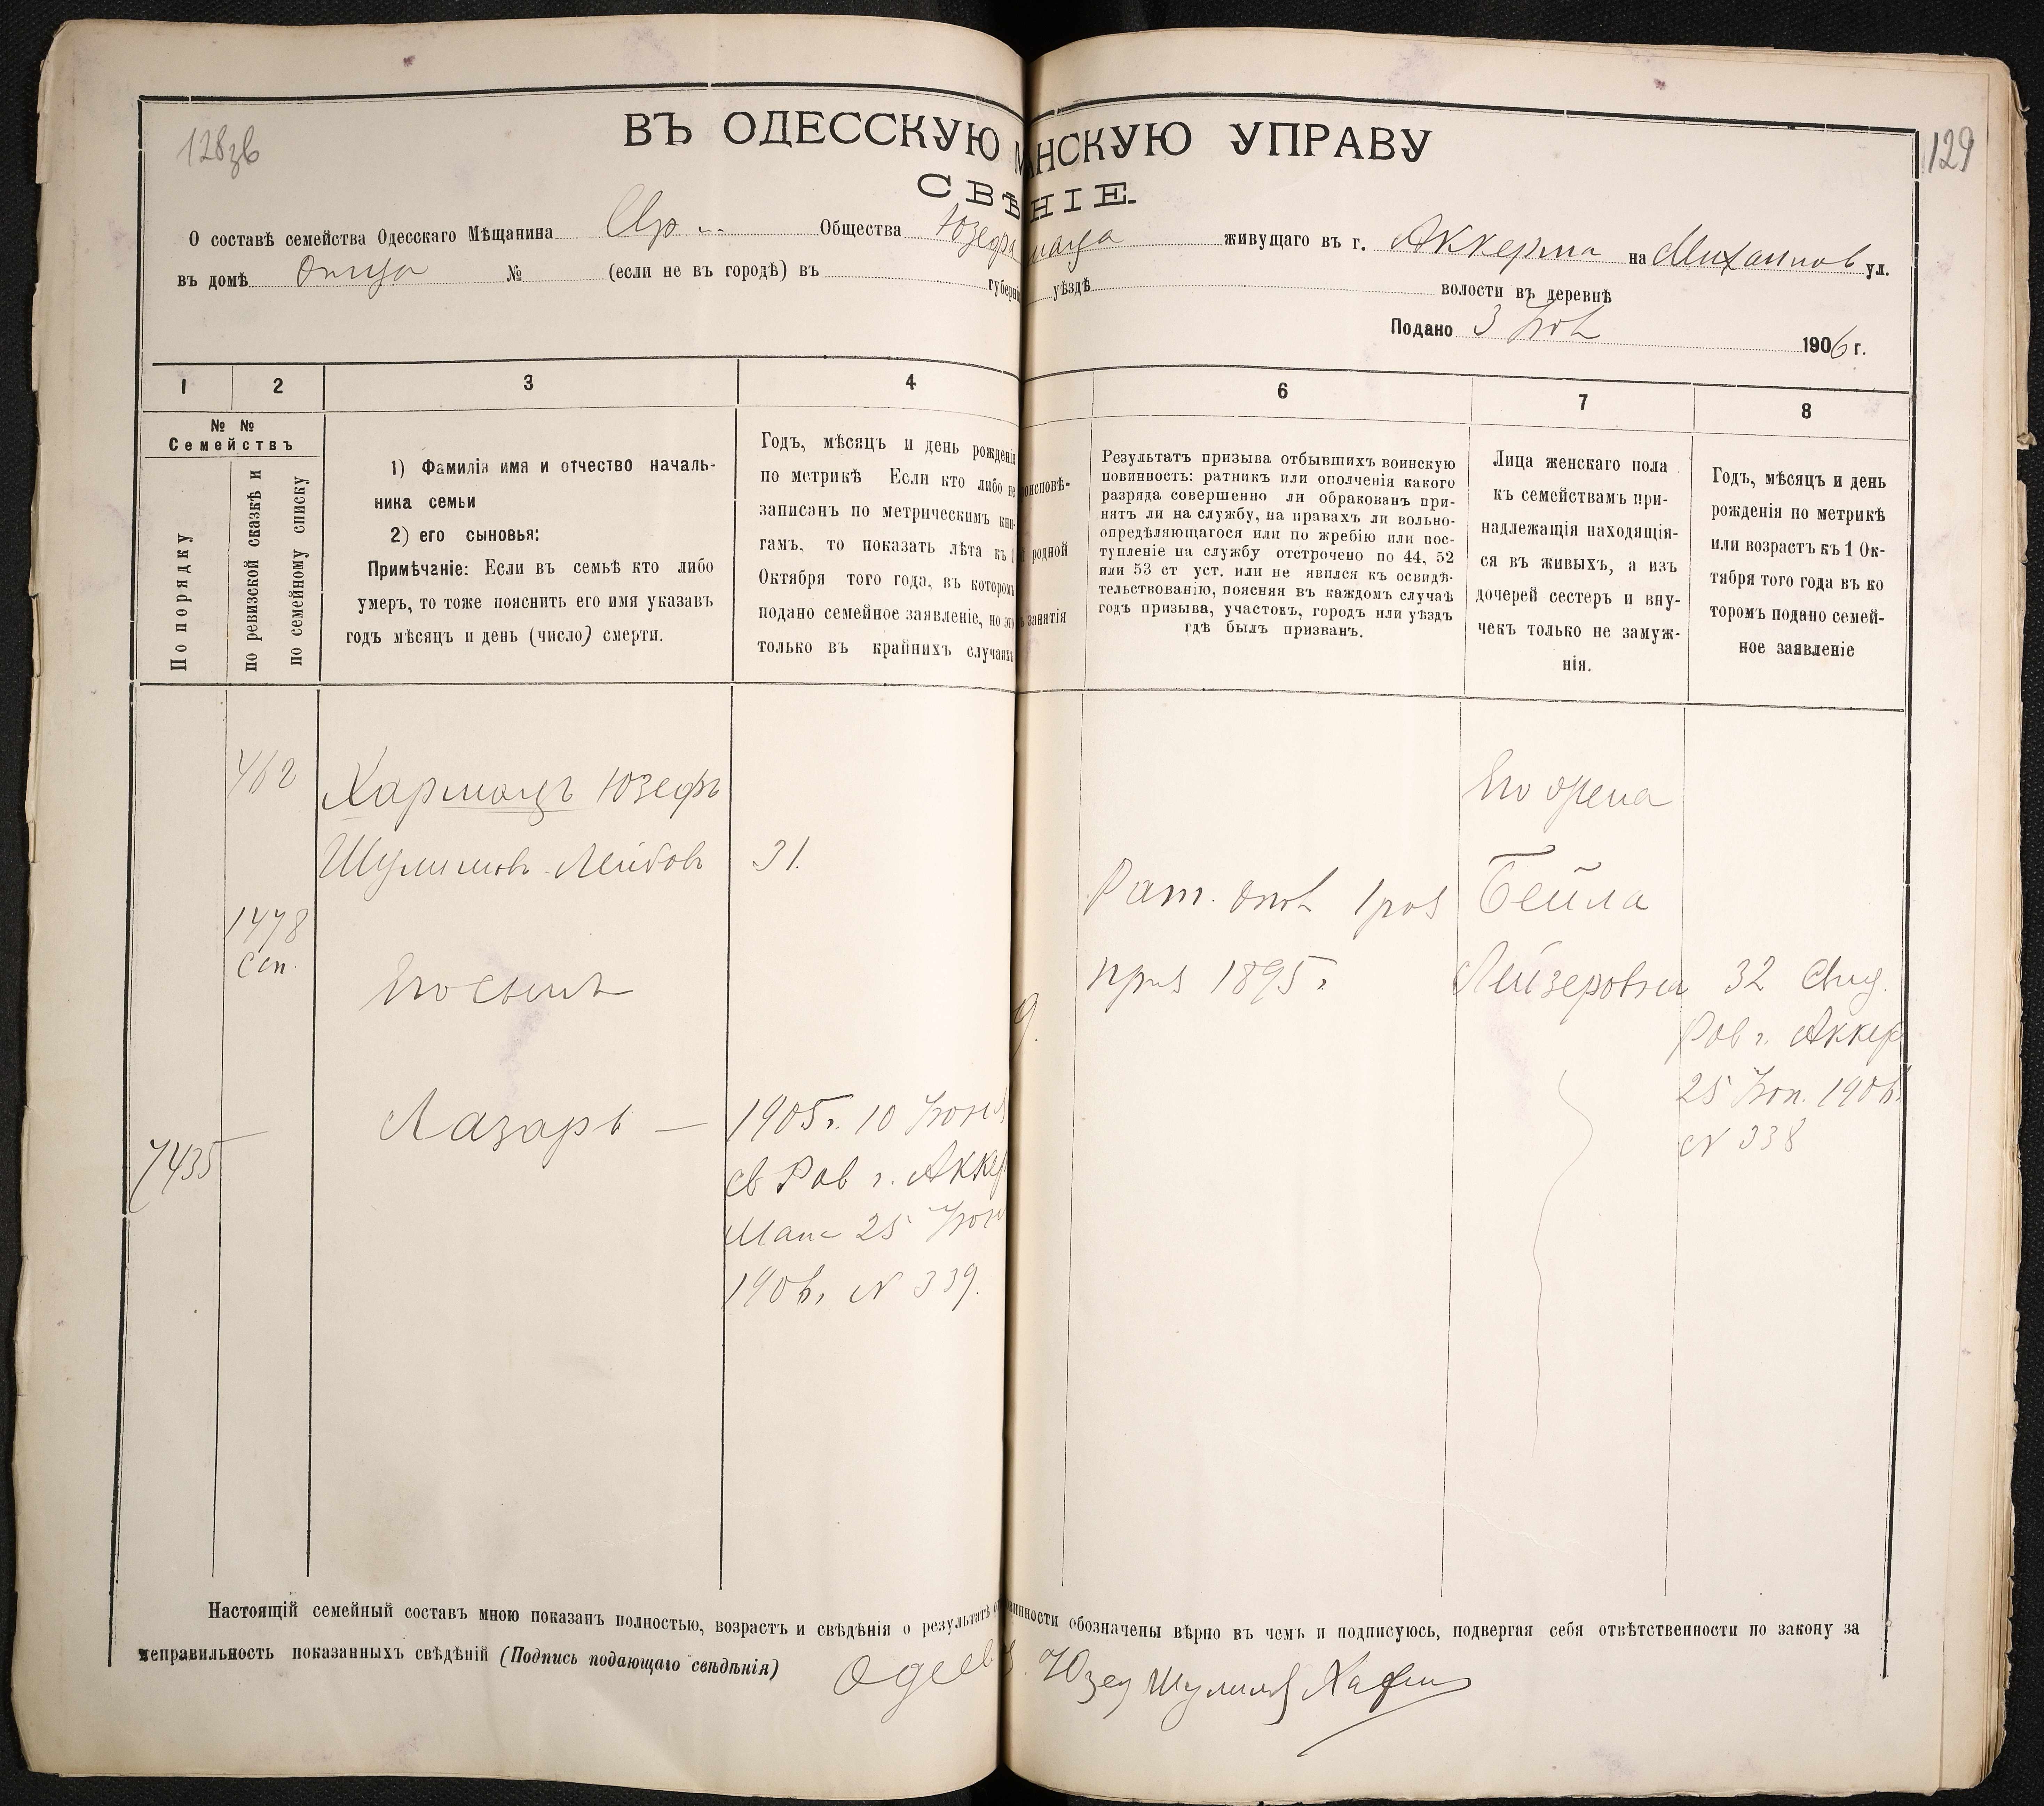 128зв
129
ВЪ ОДЕССКУЮ М АНСКУЮ УПРАВУ
СВѢ НІЕ.
О составѣ семейства Одесскаго Мѣщанина Общества Юзефа живущаго въ г. Аккерма на Михаилов ул.
въ домѣ отца № (если не въ городѣ) въ губерні уѣздѣ волости въ деревнѣ
Подано 3 1906 г.
1 2 3 4 6 7 8
№ №
Семействъ
По порядку
по ревизской сказкѣ и
по семейному списку
1) Фамилія имя и отчество началь-
ника семьи
2) его сыновья:
Примѣчаніе: Если въ семьѣ кто либо
умеръ, то тоже пояснить его имя указавъ
годъ мѣсяцъ и день (число) смерти.
Годъ, мѣсяцъ и день рожденія
по метрикѣ Если кто либо не
записанъ по метрическимъ кни-
гамъ, то показать лѣта къ 1
Октября того года, въ которомъ
подано семейное заявленіе, но это
только въ крайнихъ случаяхъ
оисповѣ-
родной
занятія
Результатъ призыва отбывшихъ воинскую
повинность: ратникъ или ополченія какого
разряда совершенно ли обракованъ при-
нятъ ли на службу, на правахъ ли вольно-
опредѣляющагося или по жребію или пос-
тупленіе на службу отстрочено по 44, 52
или 53 ст уст. или не явился къ освидѣ-
тельствованію, поясняя въ каждомъ случаѣ
годъ призыва, участокъ, городъ или уѣздъ
гдѣ былъ призванъ.
Лица женскаго пола
къ семействамъ при-
надлежащія находящія-
ся въ живыхъ, а изъ
дочерей сестеръ и вну-
чекъ только не замуж-
нія.
Годъ, мѣсяцъ и день
рожденія по метрикѣ
или возрастъ къ 1 Ок-
тября того года въ ко
торомъ подано семей-
ное заявленіе
462
Хармацъ Юзефъ
Шулимовъ Лейбовъ 31.
1478
Сп.
Его сынъ
7435
Лазарь — 1905г. 10
св Рав г. Аккер
ман 25
1906. N 339.
Рат. опол 1 раз
приз 1895г
Его жена
Бейла
Лейзеровна
32 Свид.
Рав г. Аккер
25 1906.
N 338
Настоящій семейный составъ мною показанъ полностью, возрастъ и свѣдѣнія о результатѣ о винности обозначены вѣрно въ чемъ и подписуюсь, подвергая себя отвѣтственности по закону за
неправильность показанныхъ свѣдѣній (Подпись подающаго свѣдѣнія) Юзеф Шулимов